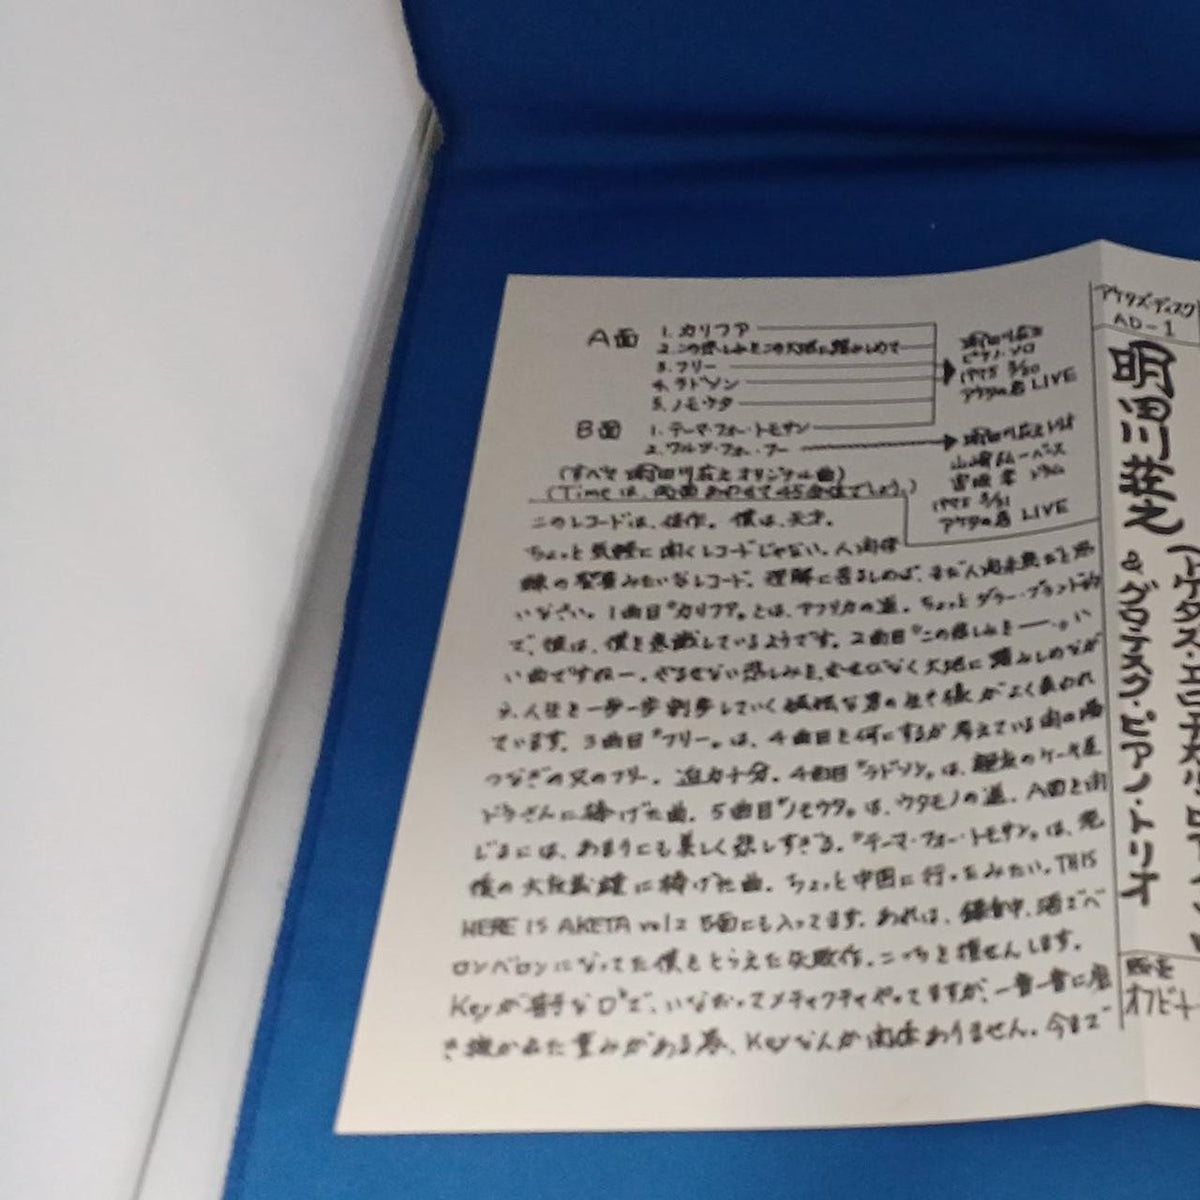 A面
1. カリフア
2. この悲しみをこの大地に踏みしめて
3. フリー
4. ラドソン
5. ノモウタ
明田川荘之
ピアノ・ソロ
1975 3/30
アケタの店 LIVE
B面
1. テーマ・フォー・トモサン
2. ワルツ・フォー・フー
明田川荘之トリオ
山崎 ベース
宮坂 孝 ドラム
1975 3/31
アケタの店 LIVE
(すべて明田川荘之オリジナル曲)
(Timeは、両面あわせて45分位でしょう。)
このレコードは、傑作。僕は、天才。
ちょっと気軽に聞くレコードじゃない。人間修
みたいなレコード。理解に苦しめば、まだ人間未熟なと思
いなさい。1曲目"カリフア"とは、アフリカの道。ちょっとダラー・ブランド的
で、彼は、僕を意識しているようです。2曲目"この悲しみを――"。い
い曲ですねー。やるせない悲しみを、大地に踏みしめなが
ら、人生を一歩一歩割歩していく な男の生き様がよく表われ
ています。3曲目"フリー"は、4曲目を何にするか考えている間の場
つなぎの為のフリー。迫力十分。4曲目"ラドソン"は、 のケーキ屋
ドラさんに捧げた曲。5曲目"ノモウタ"は、ウタモノの道。A面を閉
じるには、あまりにも美しく悲しすぎる。"テーマ・フォー・トモサン"は、
僕の大 に捧げた曲。ちょっと中国に行ってみたい。THIS
HERE IS AKETA vol2 B面にも入ってます。あれは、録音中、酒でベ
ロンベロンになってた僕をとらえた失敗作。こっちを推せんします。
Keyが苦手なD♭で、いなおってメディウティやってますが、一音一音に
き かれた重みがある為、Keyなんか関係ありません。今まで
アケタズ・ディスク
AD-1
明田川荘之
&グロテスク・ピアノ・トリオ
(アケタズ・エロチカル
販売
オフビート